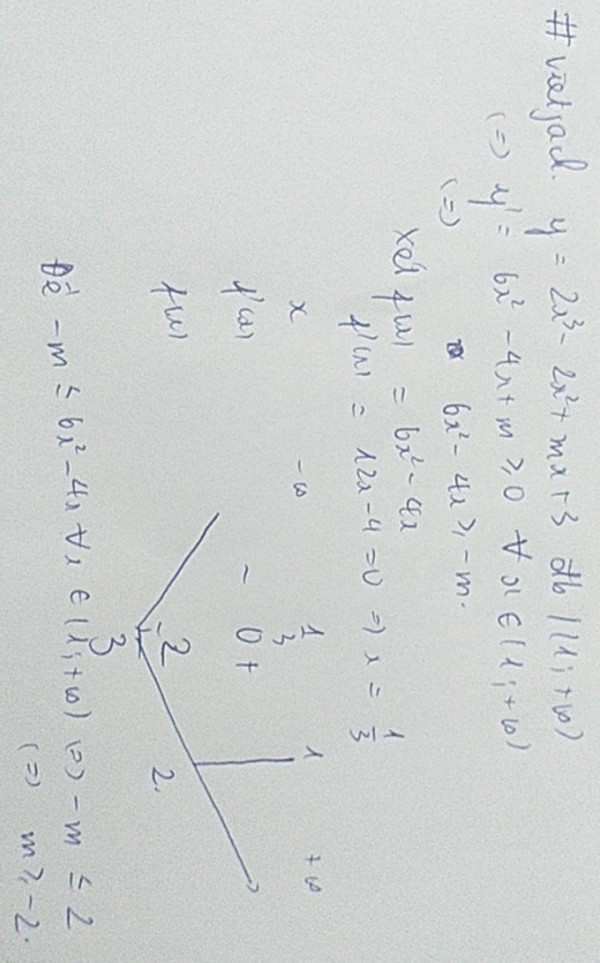 # vietjack. y = 2x³ - 2x² + mx + 3 đb / (1; +∞)
(=) y' = 6x² - 4x + m ≥ 0 ∀ x ∈ (1; +∞)
(=) 6x² - 4x ≥ -m.
xét f(x) = 6x² - 4x
f'(x) = 12x - 4 = 0 => x = 1/3
x -∞ 1/3 1 +∞
f'(x) - 0 +
f(x) -2/3 2.
Để -m ≤ 6x² - 4x ∀ x ∈ (1; +∞) (=) -m ≤ 2
(=) m ≥ -2.